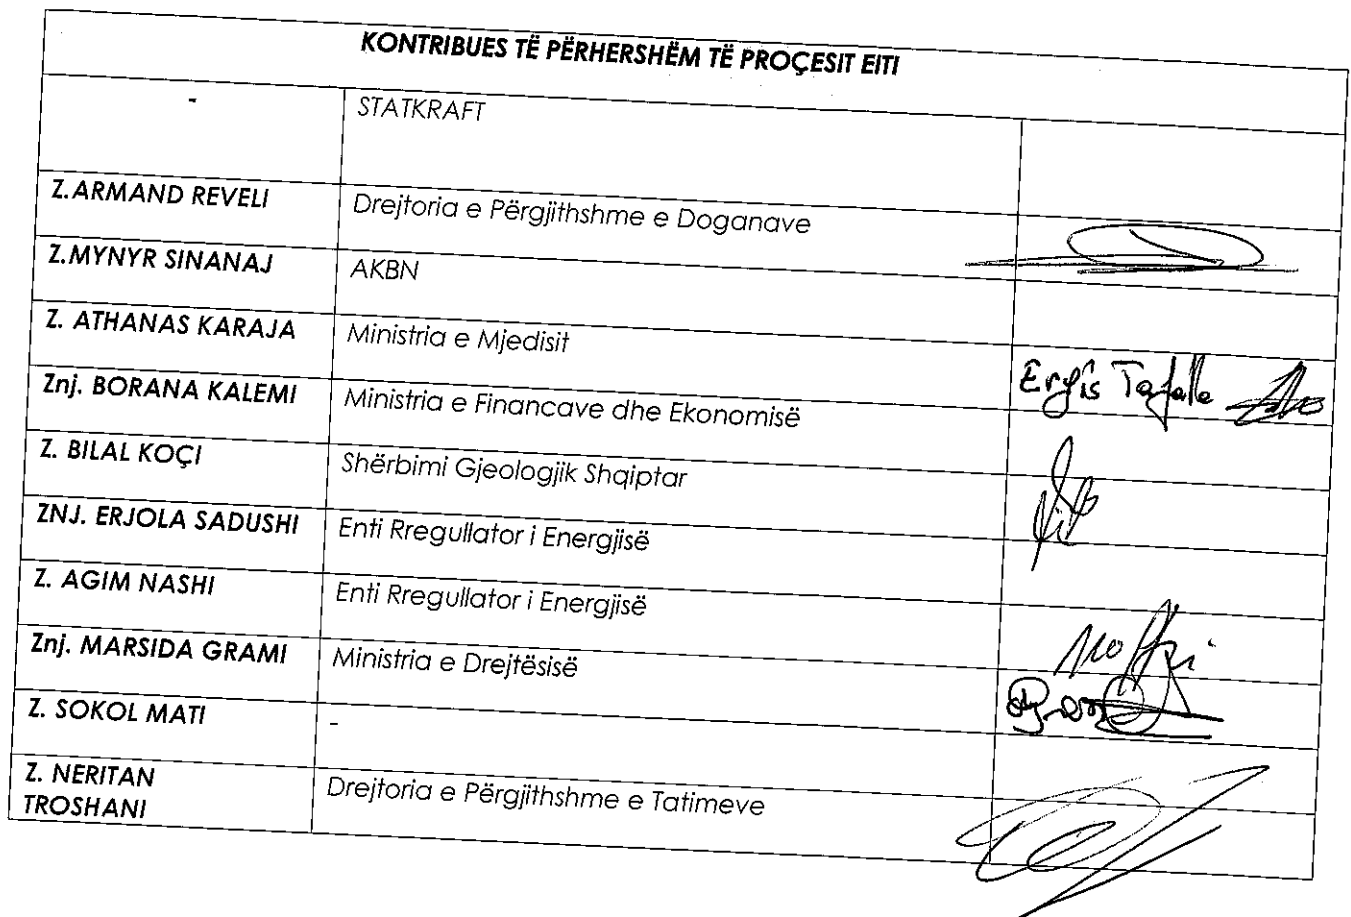 KONTRIBUES TË PËRHERSHËM TË PROÇESIT EITI
- STATKRAFT
Z.ARMAND REVELI Drejtoria e Përgjithshme e Doganave
Z.MYNYR SINANAJ AKBN
Z. ATHANAS KARAJA Ministria e Mjedisit
Ergis
Znj. BORANA KALEMI Ministria e Financave dhe Ekonomisë
Z. BILAL KOÇI Shërbimi Gjeologjik Shqiptar
ZNJ. ERJOLA SADUSHI Enti Rregullator i Energjisë
Z. AGIM NASHI Enti Rregullator i Energjisë
Znj. MARSIDA GRAMI Ministria e Drejtësisë
Z. SOKOL MATI -
Z. NERITAN
TROSHANI Drejtoria e Përgjithshme e Tatimeve